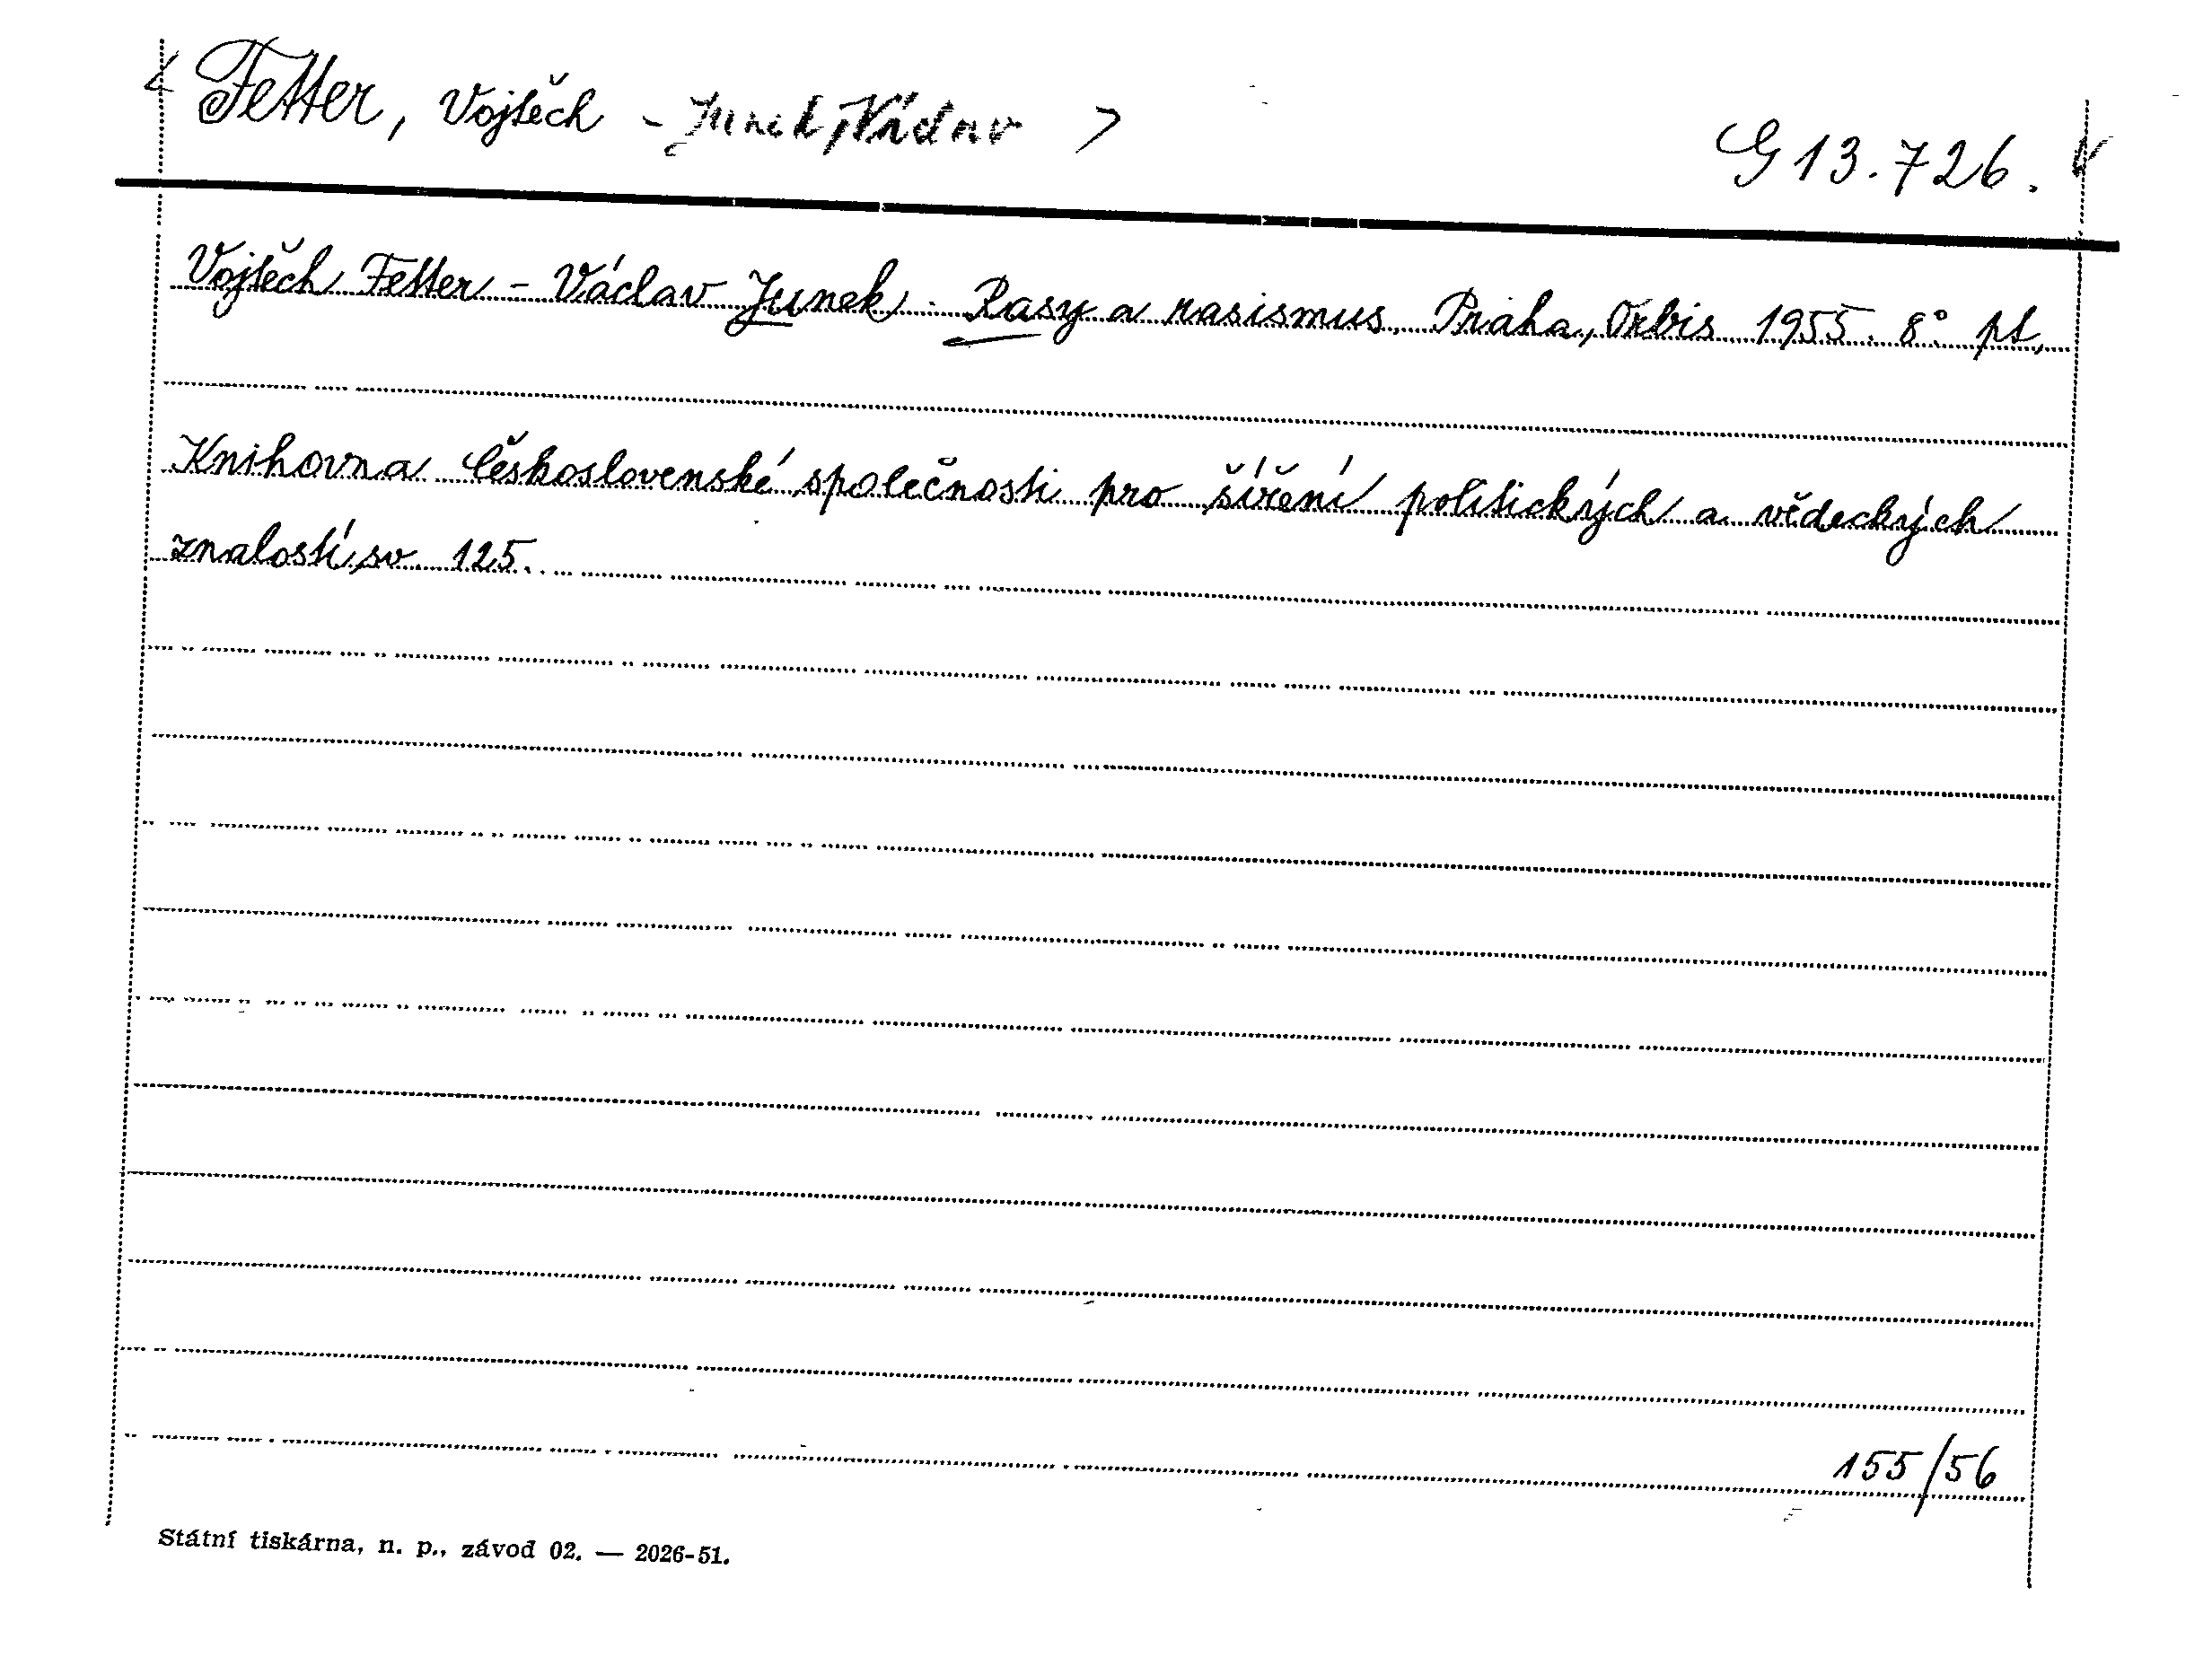 < Fetter, Vojtěch - Junek, Václav >
G 13.726.
Vojtěch Fetter - Václav Junek: Rasy a rasismus. Praha, Orbis 1955. 8° pt,
Knihovna Československé společnosti pro šíření politických a vědeckých
znalostí, sv. 125.
155/56
Státní tiskárna, n. p., závod 02. — 2026-51.